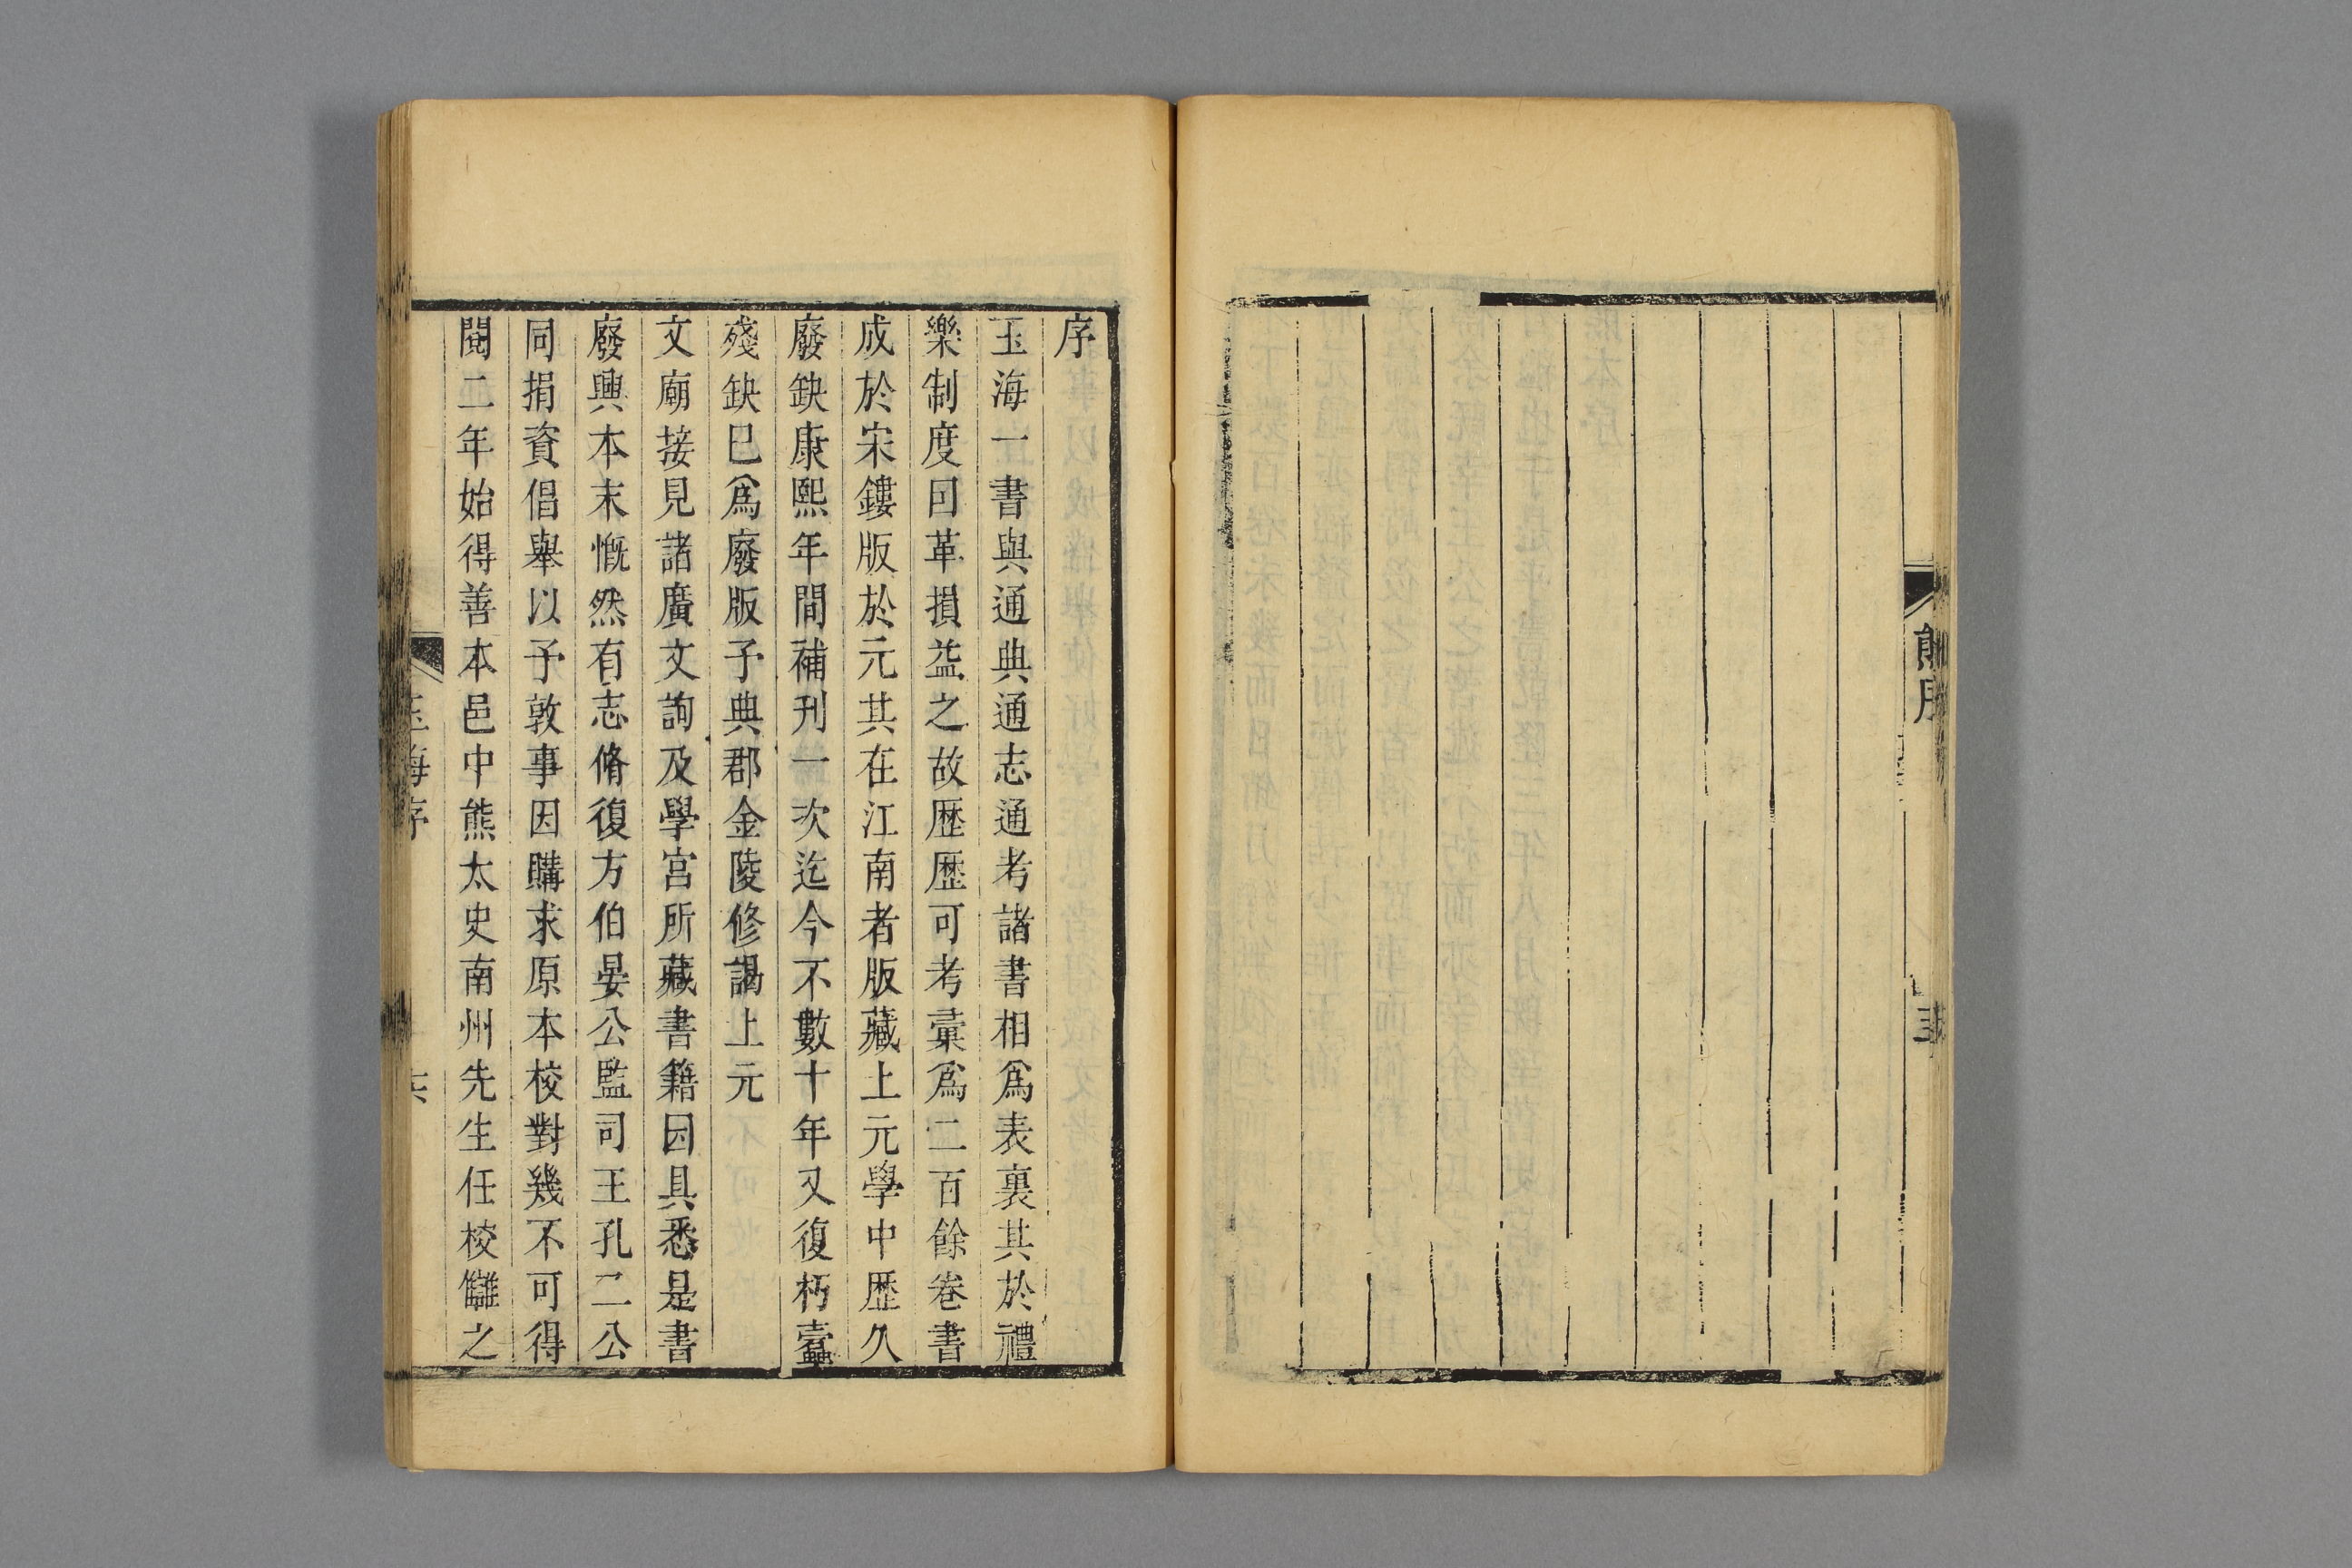 序
玉海一書與通典通志通考諸書相爲表裏其於禮
樂制度因革損益之故歷歷可考彙爲二百餘卷書
成於宋鏤版於元其在江南者版藏上元學中歷久
廢缺康熙年間補刊一次迄今不數十年又復朽蠹
殘缺已爲廢版予典郡金陵修謁上元
文廟接見諸廣文詢及學宮所藏書籍因具悉是書
廢興本末慨然有志脩復方伯晏公監司王孔二公
同捐資倡舉以予敦事因購求原本校對幾不可得
閱二年始得善本邑中熊太史南州先生任校讎之
玉海序
六